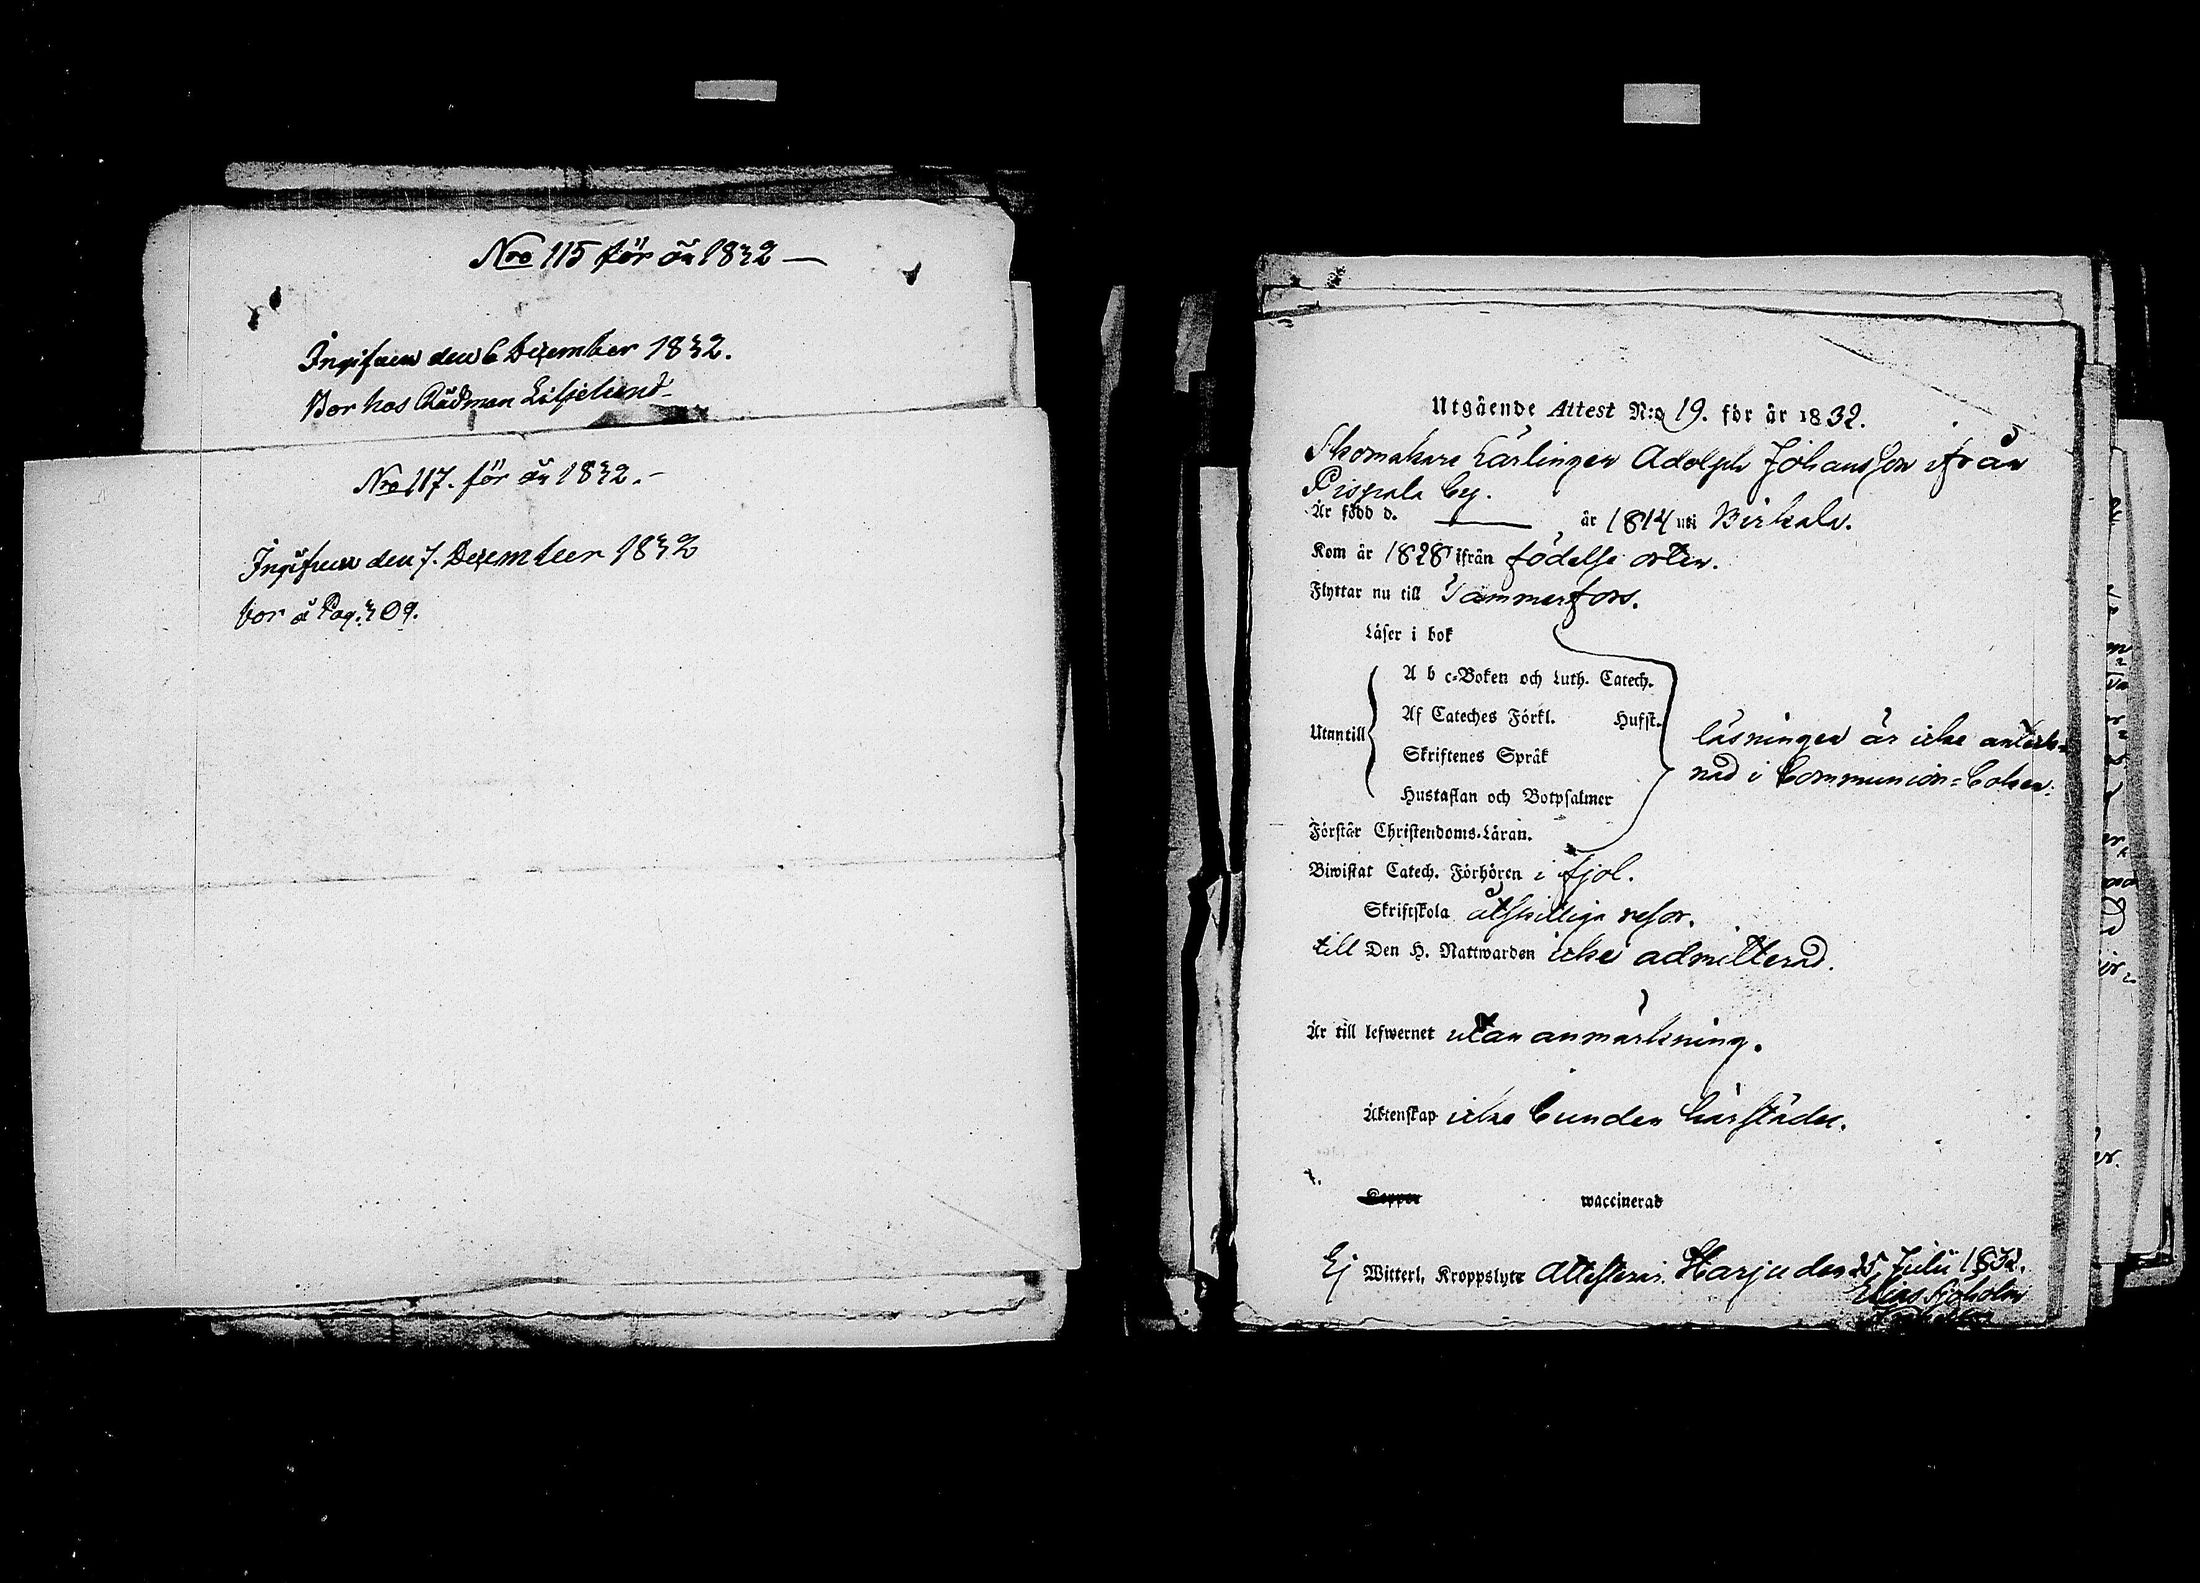 Nro 115 för år 1832 —
Ingifven den 6 December 1832.
Bor hos Rådman Liljelund
Nro 117. för år 1832. –
Ingifven den 7. December 1832
bor å Pag. 309.
Utgående Attest N:o 19. för år 1832.
Skomakare Lärlingen Adolph Johansson ifrån
Pispala by.
Är född d. — år 1814 uti Birkala.
Kom år 1828 ifrån födelse orten.
Flyttar nu till Tammerfors.
Läser i bok
A b c-Boken och Luth. Catech.
Af Cateches Förkl. Hufst.
Utantill
läsningen är icke anteck-
Skriftenes Språk
nad i Communion-boken.
Hustaflan och Botpsalmer
Förstår Christendoms-Läran.
Biwistat Catech. Förhören i fjol.
Skriftskola åtskilliga resor.
till Den H. Nattwarden icke admitterad.
Är till lefwernet utan anmärkning.
Äktenskap icke bunden härstädes.
Koppor waccinerad
Ej Witterl. Kroppslyte Attesteras. Harju den 25 Julii 1832.
Elias Sjöholm